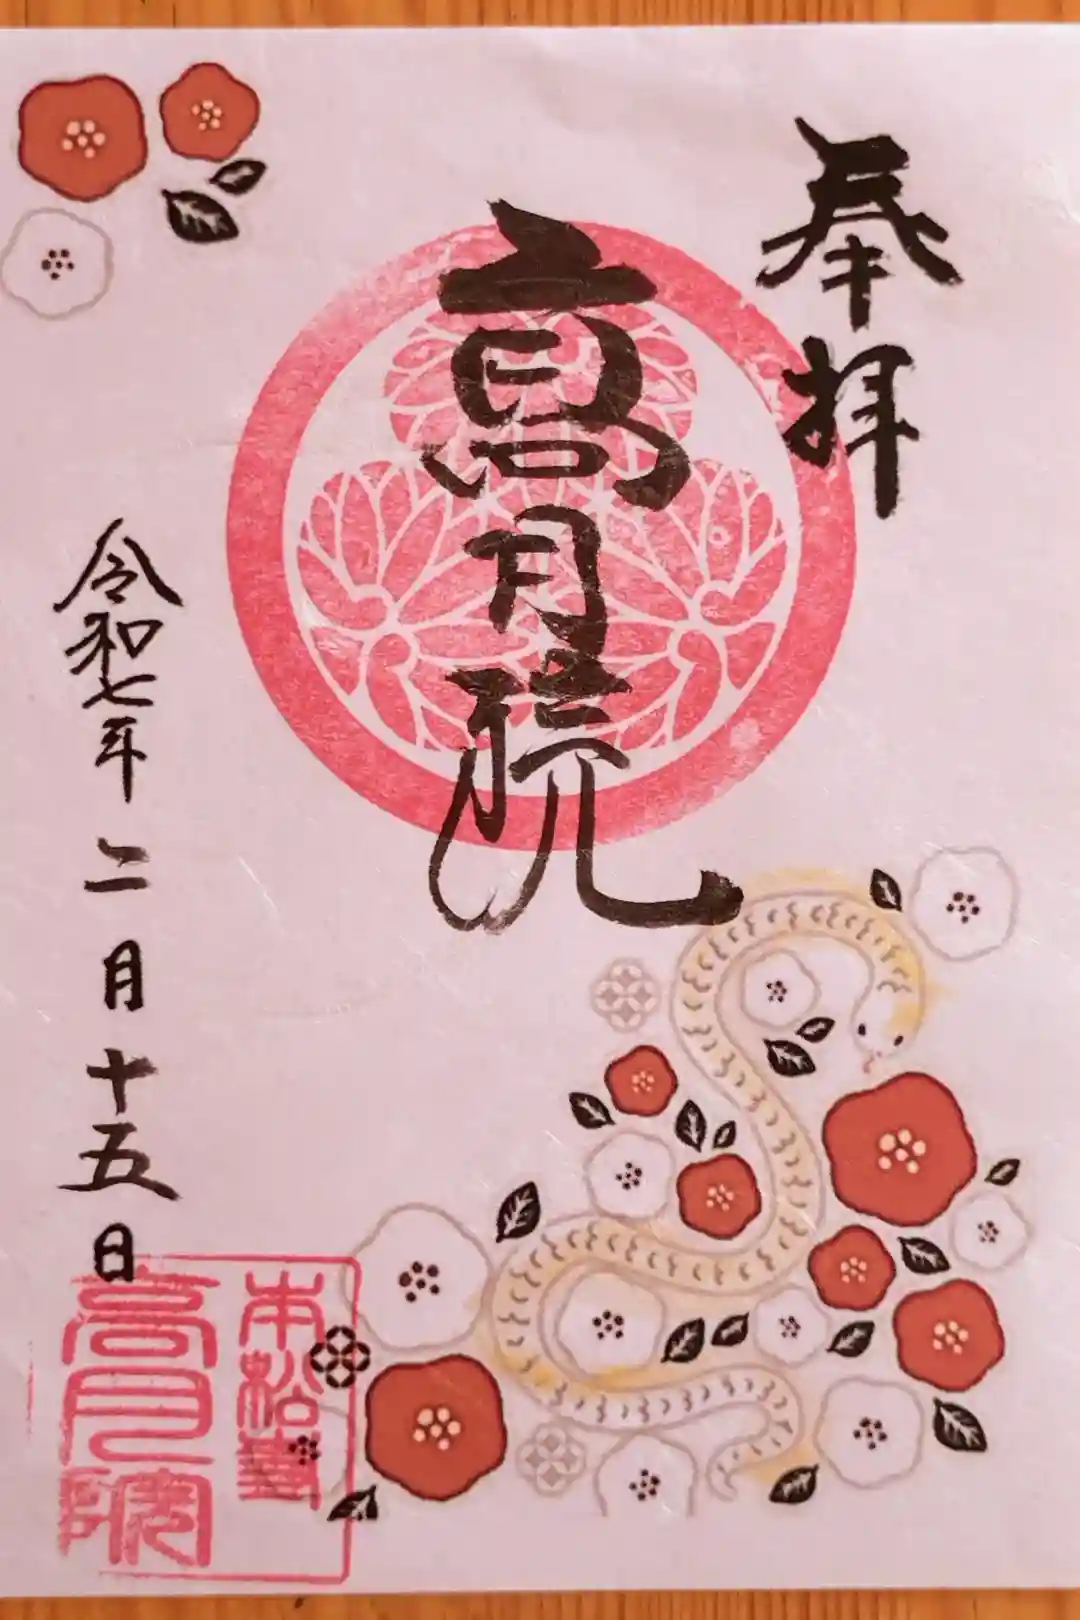 奉拝
高月院
令和七年二月十五日
本松山
高月院